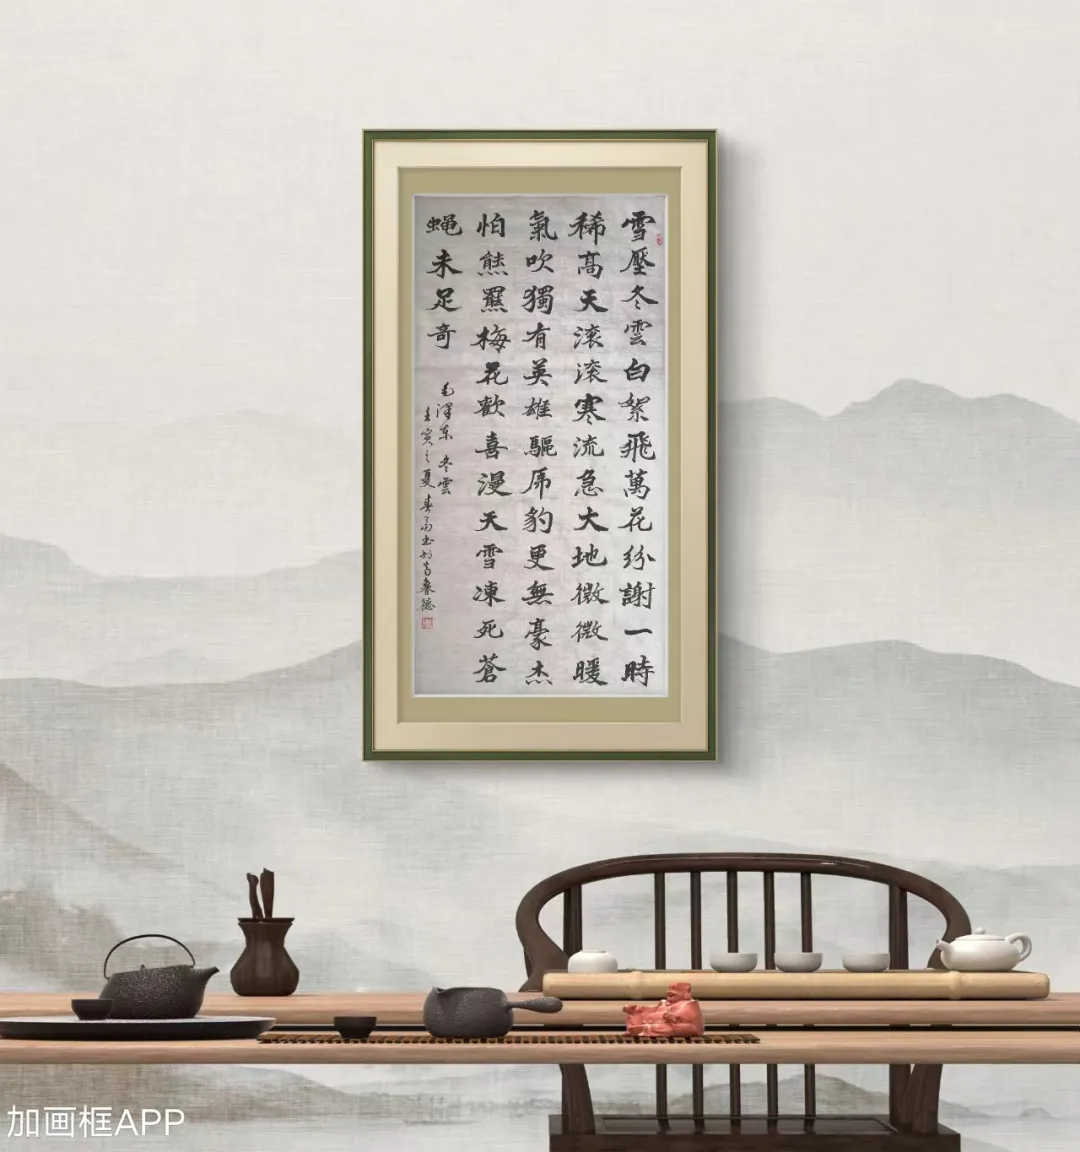 雪壓冬雲白絮飛萬花紛謝一時
稀髙天滚滚寒流急大地微微暖
氣吹獨有英雄驅虎豹更無豪杰
怕熊羆梅花歡喜漫天雪凍死蒼
蝇未足奇
毛澤东 冬雲
壬寅之夏
加画框APP